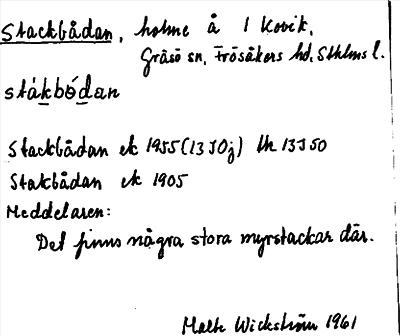 Stackbådan, holme å 1 Kovik,
Gräsö sn, Frösåkers hd, Sthlms l.
stákbódan
Stackbådan ek 1955 (13 J0j) lk 13J 50
Stakbådan ek 1905
Meddelaren:
Det finns några stora myrstackar där.
Malte Wickström 1961